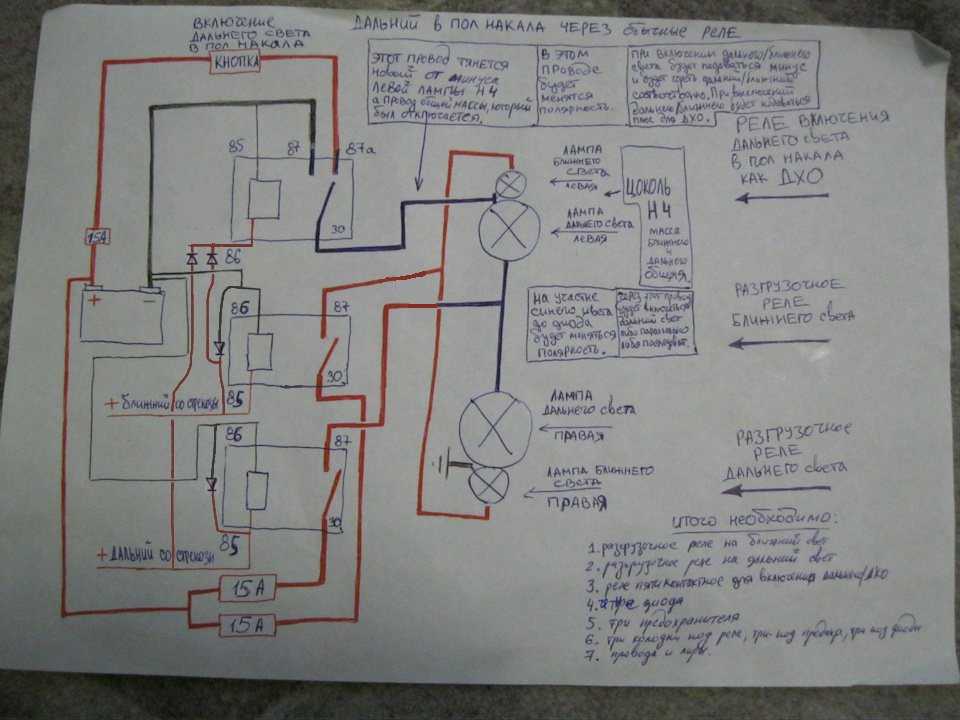 ДАЛЬНИЙ В ПОЛ НАКАЛА ЧЕРЕЗ обычные РЕЛЕ
ВКЛЮЧЕНИЕ
ДАЛЬНЕГО СВЕТА
В ПОЛ НАКАЛА
КНОПКА
ЭТОТ ПРОВОД ТЯНЕТСЯ
НОВЫЙ ОТ МИНУСА
ЛЕВОЙ ЛАМПЫ Н4
А ПРОВОД ОБЩЕЙ МАССЫ, КОТОРЫЙ
БЫЛ ОТКЛЮЧАЕТСЯ.
В ЭТОМ
ПРОВОДЕ
будет
менятся
полярность.
ПРИ включении дальнего/ближнего
света будет подаваться минус
и будет гореть дальний/ближний
соответственно. При выключенной
плюс для ДХО.
РЕЛЕ ВКЛЮЧЕНИЯ
ДАЛЬНЕГО СВЕТА
В ПОЛ НАКАЛА
КАК ДХО
85
87
87а
30
86
15А
+
−
ЛАМПА
БЛИЖНЕГО
СВЕТА
ЛЕВАЯ
ЛАМПА
ДАЛЬНЕГО СВЕТА
ЛЕВАЯ
ЦОКОЛЬ
Н4
МАССА
БЛИЖНЕГО
И
ДАЛЬНЕГО
общая
86
87
30
85
+ БЛИЖНИЙ СО СТРЕКОЗЫ
НА УЧАСТКЕ
СИНЕГО ЦВЕТА
ДО ДИОДА
будет меняться
полярность.
ЧЕРЕЗ ЭТОТ ПРОВОД
будет включаться
дальний свет
либо параллельно
либо последоват.
РАЗГРУЗОЧНОЕ
РЕЛЕ
БЛИЖНЕГО СВЕТА
86
87
30
85
+ ДАЛЬНИЙ СО СТРЕКОЗЫ
ЛАМПА
ДАЛЬНЕГО СВЕТА
ПРАВАЯ
ЛАМПА БЛИЖНЕГО
СВЕТА
ПРАВАЯ
РАЗГРУЗОЧНОЕ
РЕЛЕ
ДАЛЬНЕГО СВЕТА
15 А
15 А
ИТОГО НЕОБХОДИМО:
1. разгрузочное реле на ближний свет
2. разгрузочное реле на дальний свет
3. реле пятиконтактное для включения дальнего/ДХО
4. три диода
5. три предохранителя
6. три колодки под реле, три под предохр, три под диоды
7. провода и